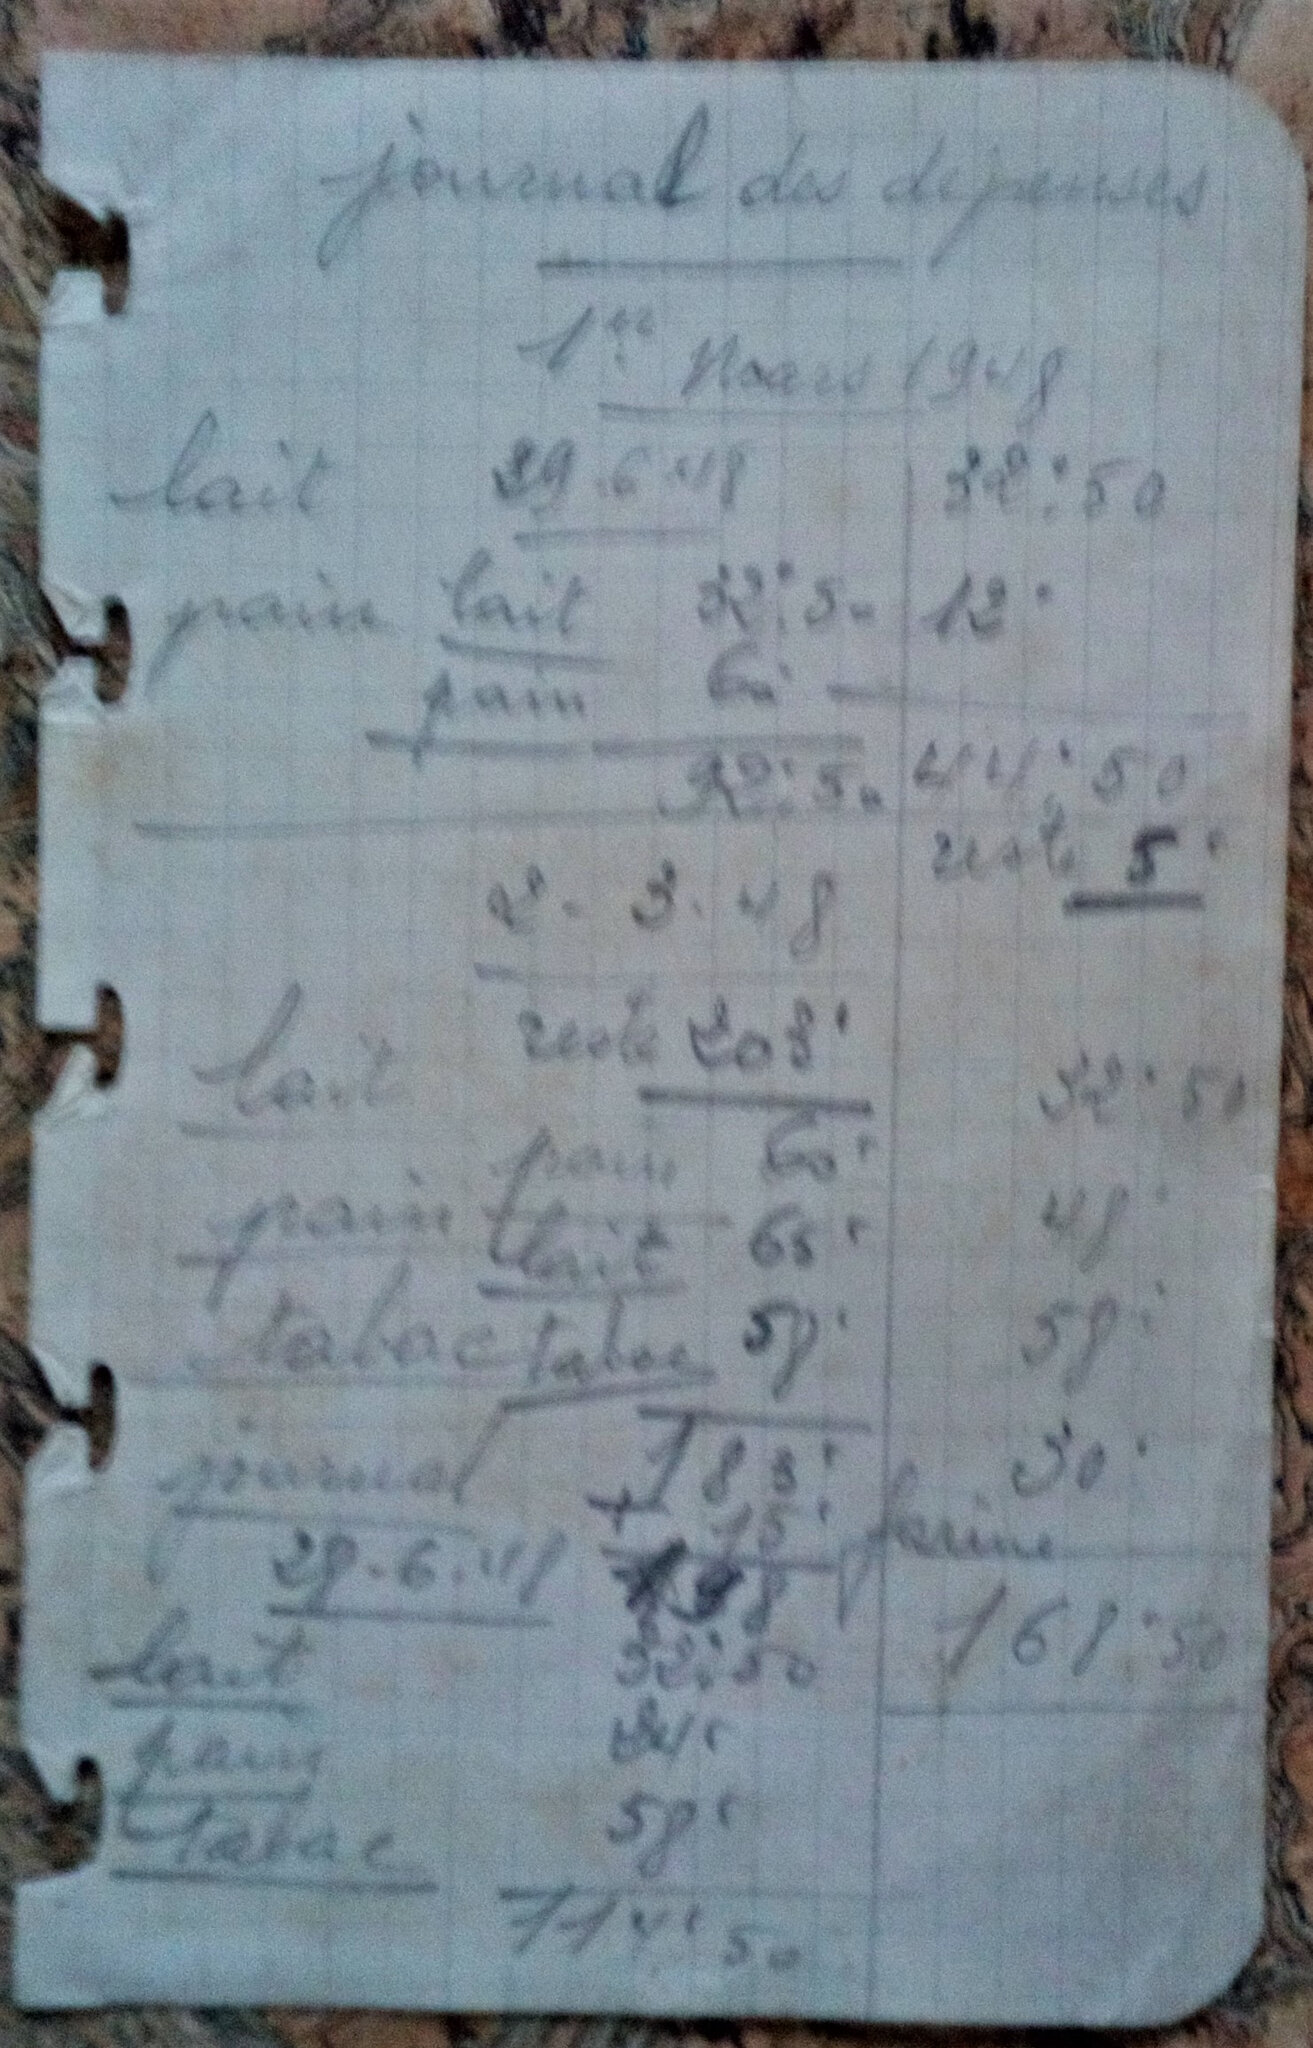 journal des dépenses
1er Mars 1948
lait 29.6.48 32 50
pain lait 32 50 12
pain 60
92 50 44 50
reste 5
2. 3. 48
reste 203
lait 32 50
pain 60
pain lait 65 48
tabac tabac 58 58
journal 183 30
+ 15 farine
29.6.48 198 168 50
lait 32 50
pain 24
tabac 58
114 50